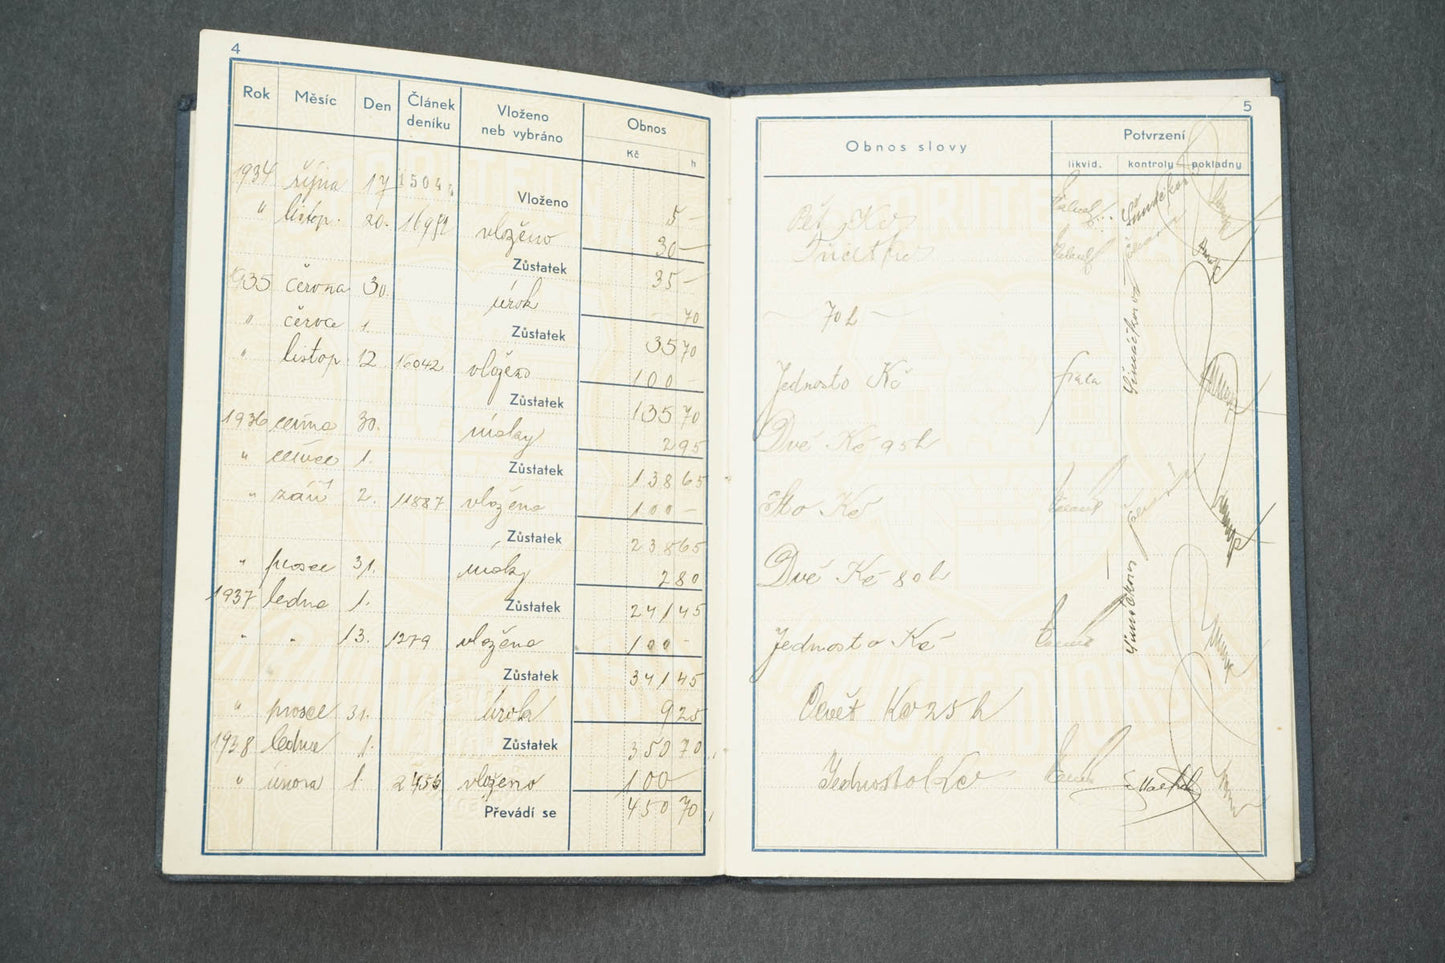 4
Rok Měsíc Den Článek deníku Vloženo neb vybráno Obnos
Kč h
1934 října 17 1504 Vloženo 5 —
" listop. 20. vloženo 30 —
Zůstatek 35 —
1935 června 30. úrok 70
" červce 1. Zůstatek 35 70
" listop 12 16042 vloženo 100 —
Zůstatek 135 70
1936 června 30. úroky 2 95
" července 1. Zůstatek 138 65
" září 2. 11887 vloženo 100 —
Zůstatek 238 65
" prosce 31. úroky 2 80
1937 ledna 1. Zůstatek 241 45
" " 13. 1279 vloženo 100 —
Zůstatek 341 45
" prosce 31. úrok 9 25
1938 ledna 1. Zůstatek 350 70
" února 1. 2456 vloženo 100
Převádí se 450 70
5
Obnos slovy Potvrzení
likvid. kontroly pokladny
Pět Kč
Třicet Kč
— 70 h —
Jednosto Kč
Dvě Kč 95 h
Sto Kč
Dvě Kč 80 h
Jednosto Kč
Devět Kč 25 h
Jednosto Kč